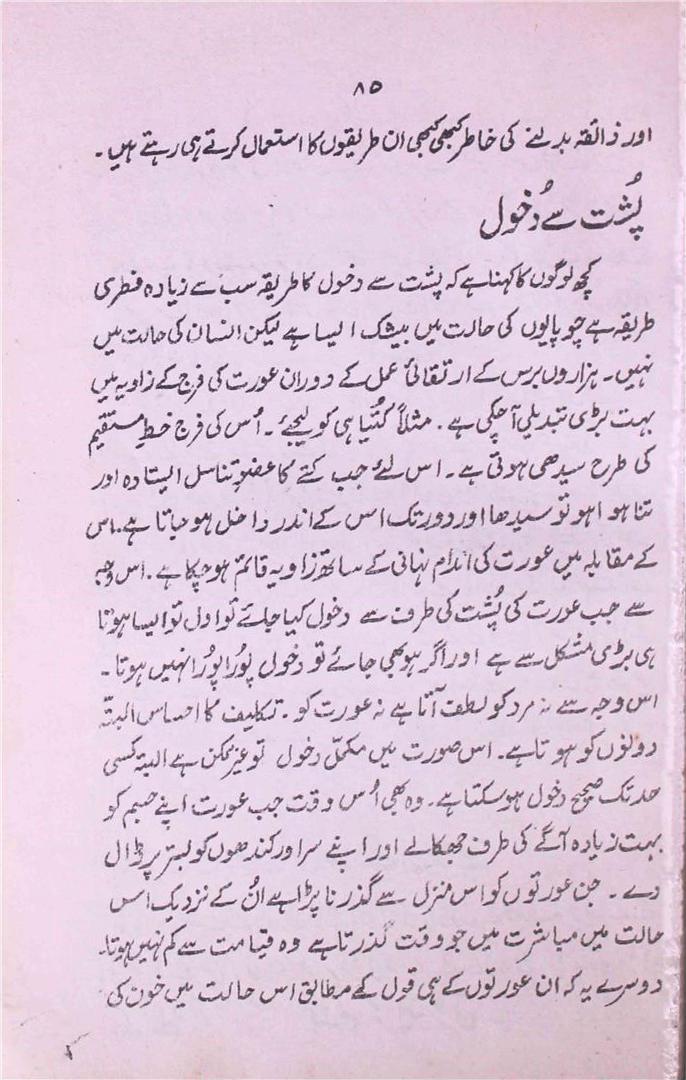 ۸۵
اور ذائقہ بدلنے کی خاطر کبھی کبھی ان طریقوں کا استعمال کرتے ہی رہتے ہیں۔
پُشت سے دُخول
کچھ لوگوں کا کہنا ہے کہ پشت سے دخول کا طریقہ سب سے زیادہ فطری
طریقہ ہے چوپایوں کی حالت میں بیشک ایسا ہے لیکن انسان کی حالت میں
نہیں۔ ہزاروں برس کے ارتقائی عمل کے دوران عورت کی فرج کے زاویہ میں
بہت بڑی تبدیلی آچکی ہے۔ مثلاً کُتیا ہی کو لیجئے۔ اُس کی فرج خطِ مستقیم
کی طرح سیدھی ہوتی ہے۔ اس لئے جب کتے کا عضوِ تناسل ایستادہ اور
تنا ہوا ہو تو سیدھا اور دور تک اس کے اندر داخل ہو جاتا ہے۔ اس
کے مقابلہ میں عورت کی اندام نہانی کے ساتھ زاویہ قائم ہو چکا ہے۔ اس وجہ
سے جب عورت کی پُشت کی طرف سے دخول کیا جائے تو اول تو ایسا ہوتا
ہی بڑی مشکل سے ہے اور اگر ہو بھی جائے تو دخول پُورا پُورا نہیں ہوتا۔
اس وجہ سے نہ مرد کو لطف آتا ہے نہ عورت کو۔ تکلیف کا احساس البتہ
دونوں کو ہوتا ہے۔ اس صورت میں مکمل دخول تو غیر ممکن ہے البتہ کسی
حد تک صحیح دخول ہو سکتا ہے۔ وہ بھی اُس وقت جب عورت اپنے جسم کو
بہت زیادہ آگے کی طرف جھکالے اور اپنے سر اور کندھوں کو بستر پر ڈال
دے۔ جن عورتوں کو اس منزل سے گذرنا پڑا ہے اُن کے نزدیک اس
حالت میں مباشرت میں جو وقت گذرتا ہے وہ قیامت سے کم نہیں ہوتا۔
دوسرے یہ کہ ان عورتوں کے ہی قول کے مطابق اس حالت میں خون کی